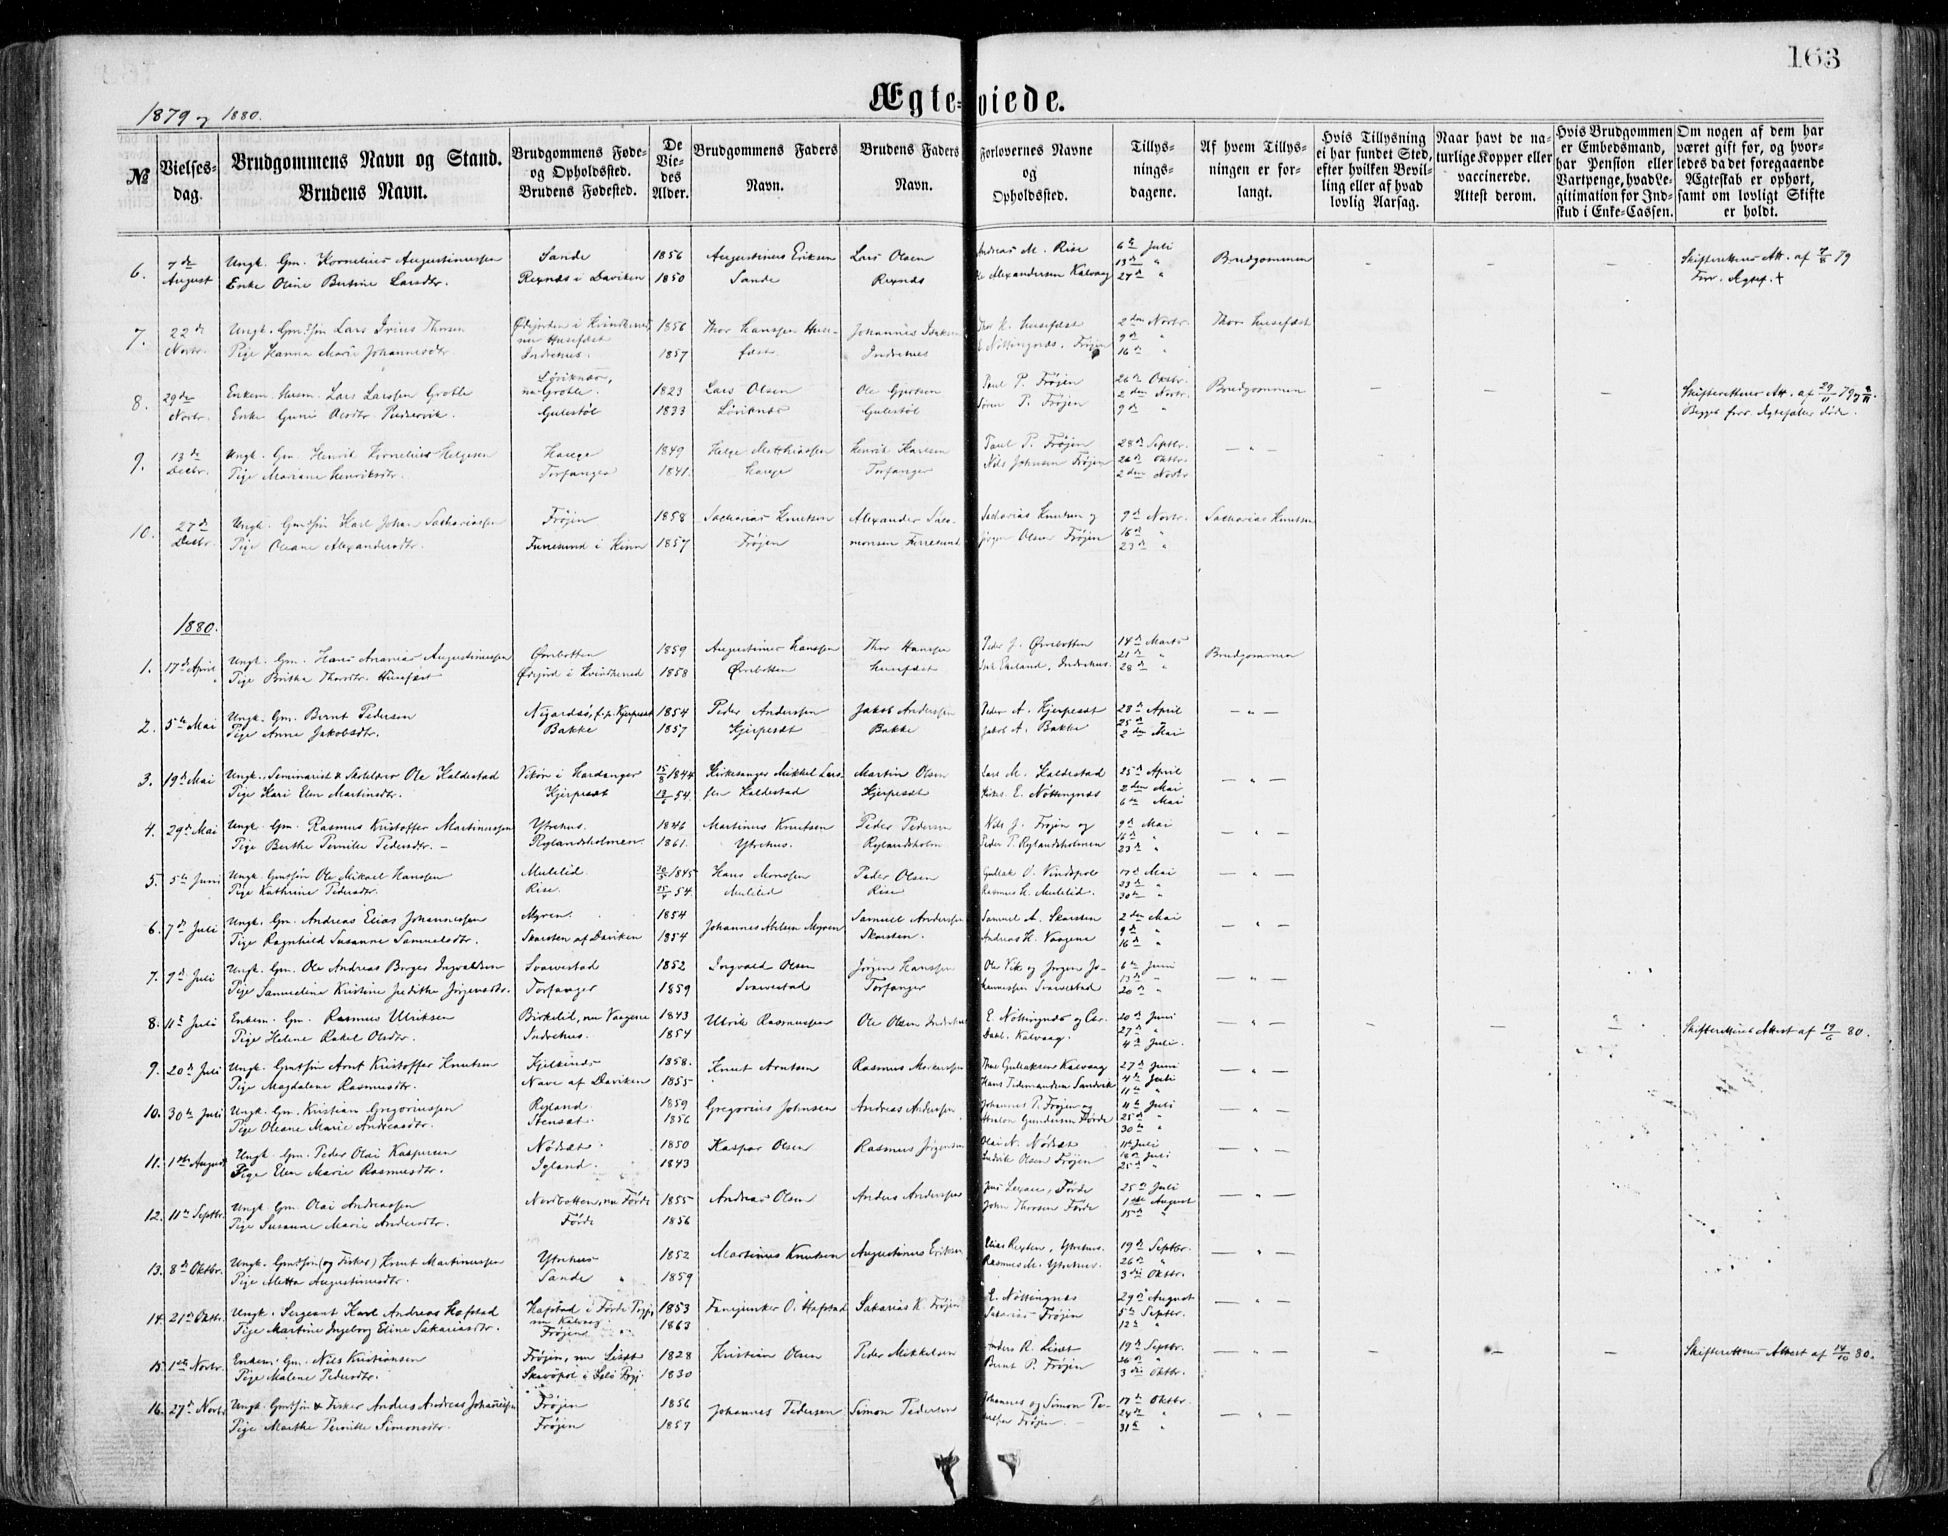 163
1879 og 1880.
Ægteviede.
№
Vielses-
dag.
Brudgommens Navn og Stand.
Brudens Navn.
Brudgommens Føde-
og Opholdssted.
Brudens Fødested.
De
Vie-
des
Alder.
Brudgommens Faders
Navn.
Brudens Faders
Navn.
Forlovernes Navne
og
Opholdssted.
Tillys-
nings-
dagene.
Af hvem Tillys-
ningen er for-
langt.
Hvis Tillysning
ei har fundet Sted,
efter hvilken Bevil-
ling eller af hvad
lovlig Aarsag.
Naar havt de na-
turlige Kopper eller
vaccinerede.
Attest derom.
Hvis Brudgommen
er Embedsmand,
har Pension eller
Vartpenge, hvad Le-
gitimation for Ind-
skud i Enke-Cassen.
Om nogen af dem har
været gift før, og hvor-
ledes da det foregaaende
Ægteskab er ophørt,
samt om lovligt Skifte
er holdt.
6. 7de August
Ungk. Gm. Kornelius Augustinussen
Enke Oline Bertine Larsdtr.
Sande
Rexnæs i Daviken
1856
1850
Augustinus Eriksen
Sande
Lars Olsen
Rexnæs
Andreas M. Rise
Alexandersen Kalvaag
6te Juli
13de "
27de "
Brudgommen
Skifterettens Att. af 79
Forr. Ægtef. +
7. 22de Novbr.
Ungk. Gmdsøn Lars Thorsen
Pige Hanna Marie Johannesdtr.
nu Husefæst
Indrehus.
1856
1857
Thor Hanssen Huse-
fæst
Johannes
Indrehus
Thor H. Husefæst
Nøttingnæs, Frøjen
2den Novbr.
9de "
16de "
Thor Husefæst
8. 29de Novbr.
Enkem. Husm. Lars Larssen Grotle
Enke Guri Olsdtr.
nu Grotle.
Gulestøl
1823
1833
Lars Olsen
Ole
Gulestøl
Paul P. Frøjen
Søren P. Frøjen
26de Oktbr.
2den Novbr.
9de "
Brudgommen
Skifterettens Att. af 29/11 79
Begges forr. Ægtefæller døde.
9. 13de Decbr.
Ungk. Gm. Henrik Kornelius Helgesen
Pige Mariane Henriksdtr.
Hauge
Torfanger
1849
1841.
Helge Matthiassen
Hauge
Henrik Karlsen
Torfanger
Paul P. Frøjen
Nils Johnsen Frøjen
28de Septbr.
26de Oktbr.
2den Novbr.
— " —
10. 27de Decbr.
Ungk. Gmdsøn Karl Johan Sachariassen
Pige Oleane Alexandersdtr.
Frøjen
Furesund i Kinn
1858
1857
Sacharias Knutsen
Frøjen
Alexander Salo-
monsen Furresund
Sacharias Knutsen og
Jørgen Olsen Frøjen
9de Novbr.
16de "
23de "
Sacharias Knutsen
1880.
1. 17de April
Ungk. Gm. Hans Ananias Augustinussen
Pige Britha Thorsdtr. Husefæst
Ørnbotten
1859
1858
Augustinus Hanssen
Ørnbotten
Thor Hanssen
Husefæst
Peder J. Ørnbotten
Indrehus.
14de Marts
21de "
28de "
Brudgommen
2. 5te Mai
Ungk. Gm. Bernt Pedersen
Pige Anne Jakobsdtr.
Bakke
1854
1857
Peder Anderssen
Hjerpesæt
Jakob Anderssen
Bakke
Peder A. Hjerpesæt
Jakob A. Bakke
April
25de "
2den Mai
— " —
3. 19de Mai
Ungk. Seminarist & Skolelærer Ole Haldestad
Pige Kari Elen Martinsdtr.
Vikør i Hardanger
Hjerpesæt
15/8 1844
54
Kirkesanger Mikkel Lars-
sen Haldestad
Martin Olsen
Hjerpesæt
Lars M. Haldestad
E. Nøttingnæs
25de April
2den Mai
6te Mai
— " —
4. 29de Mai
Ungk. Gm. Rasmus Kristoffer Martinussen
Pige Berthe Pernille Pedersdtr. —
Ytrehus.
Rylandsholmen.
1846
1861.
Martinus Knutsen
Ytrehus.
Peder Pedersen
Rylandsholm
Nils J. Frøjen og
Peder P. Rylandsholmen
9de Mai
16de "
23de "
— " —
5. 5te Juni
Ungk. Gmdsøn Ole Mikael Hanssen
Pige Kathrine Pedersdtr.
Mulelid
Rise
1845
54
Hans Monssen
Mulelid
Peder Olsen
Rise
Gullak O. Vindspol
Rasmus H. Mulelid.
17de Mai
23de "
30te "
— " —
6. 7de Juli
Ungk. Gm. Andreas Elias Johannessen
Pige Ragnhild Susanne Samuelsdtr.
Myren.
Skorsten af Daviken
1854
1854
Johannes Myren
Samuel Anderssen
Skorsten.
Samuel A. Skorsten
Andreas H. Vaagene
2den Mai
9de "
16de "
— " —
7. 9de Juli
Ungk. Gm. Ole Andreas Borges Ingvaldsen
Pige Samueline Kristine Judithe Jørgensdtr.
Svarvestad
Torfanger
1852
1859
Ingvald Olsen
Svarvestad
Jørgen Hanssen
Torfanger
Ole Vik og Jørgen Jo-
hannessen Svarvestad
6te Juni
13de "
20de "
— " —
8. 11te Juli
Enkem. Gm. Rasmus Ulriksen
Pige Helene Rakel Olsdtr.
Birkelid, nu Vaagene
Indrehus.
1843
1854
Ulrik Rasmussen
Ole Olsen Indrehus
E. Nøttingnæs og Chr.
Dahl. Kalvaag.
20de Juni
27de "
4de Juli.
— " —
Skifterettens Attest af 19/6 80.
9. 20de Juli
Ungk. Gmdsøn Arnt Kristoffer Knutsen
Pige Magdalene Rasmusdtr.
Nave af Daviken
1858.
1855
Knut Arntsen
Rasmus Markussen
Thor Gullaksen Kalvaag
Hans Tidemandsen Sandvik
27de Juni
4de Juli
11te "
— " —
10. 30te Juli
Ungk. Gm. Kristian Gregoriussen
Pige Oleane Marie Andreasdtr.
Ryland
Stensæt.
1859
1856
Gregorius Johnsen
Andreas Anderssen
Johannes P. Frøjen og
Gundersen Førde
4de Juli
25de "
30te "
— " —
11. 1ste August
Ungk. Gm. Peder Olai Kaspersen
Pige Elen Marie Rasmusdtr.
Nødsæt
Igland.
1850
1843
Kaspar Olsen
Rasmus Jørgensen
Olai N. Nødsæt
Ludvik Olsen Frøjen
11te Juli
18de Juli
25de "
— " —
12. 11te Septbr.
Ungk. Gm. Olai Andreassen
Pige Susanne Marie Andersdtr.
Nordbotten, nu Førde
Førde
1855
1856
Andreas Olsen
Anders Anderssen
Førde
John Thorsen Førde
25de Juli
1ste August
15de "
— " —
13. 8de Oktbr.
Ungk. Gmdsøn (og Fisker) Knut Martinussen
Pige Metta Augustinusdtr.
Ytrehus
Sande "
1852
1859
Martinus Knutsen
Augustinus Eriksen
Elias Rexten, Ytrehus.
Rasmus M. Ytrehus.
19de Septbr.
26de "
3die Oktbr.
— " —
14. 21de Oktbr.
Ungk. Sergeant Karl Andreas Hafstad
Pige Martine Ingeborg Eline Sakariasdtr.
Hafstad i Førde Prgj.
nu Kalvaag.
Frøjen
1853
1863
Fanejunker O. Hafstad
Sakarias K. Frøjen
E. Nøttingnæs
Sakarias Frøjen
29de August
5te Septbr.
12te "
— " —
15. 1ste Novbr.
Enkem. Gm. Nils Kristiansen
Pige Malene Pedersdtr.
Frøjen, nu Liset
1828
1830
Kristian Olsen
Peder Mikkelsen
Anders R. Liset
Bernt P. Frøjen
19de Septbr.
26de "
3die Oktbr.
— " —
Skifterettens Attest af 14/10 80.
16. 27de Novbr.
Ungk. Gmdsøn & Fisker Anders Andreas Johannessen
Pige Marthe Pernille Simonsdtr.
Frøjen
Frøjen
1856
1857
Johannes Pedersen
Simon Pedersen
Johannes og Simon Pe-
dersen Frøjen. —
17de Oktbr.
24de "
31te "
— " —